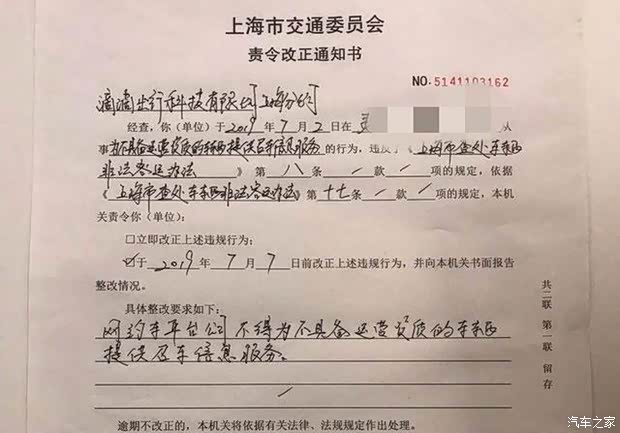 上海市交通委员会
责令改正通知书
NO.5141103162
滴滴出行科技有限公司上海分公司
经查，你（单位）于2019年7月2日在
从
事为不具备运营资质的车辆提供召车信息服务的行为，违反了《上海市查处车辆
非法客运办法》第八条/款/项的规定，依据
《上海市查处车辆非法客运办法》第十七条/款/项的规定，本机
关责令你（单位）：
□立即改正上述违规行为；
☑于2019年7月7日前改正上述违规行为，并向本机关书面报告
整改情况。
具体整改要求如下：
网约车平台公司不得为不具备运营资质的车辆
提供召车信息服务。
/
逾期不改正的，本机关将依据有关法律、法规规定作出处理。
共二联 第一联 留存
汽车之家